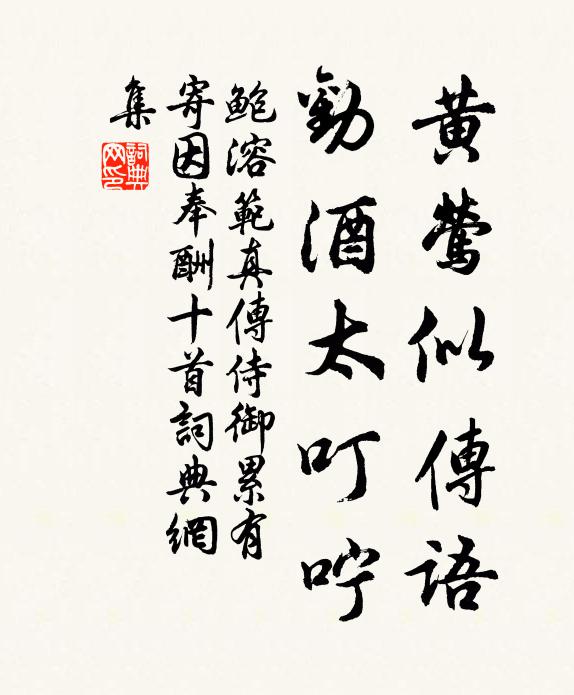 黃鶯似傳語
勸酒太叮嚀
鮑溶範真傳侍御累有
寄因奉酬十首詞典網
集
詞典
網印